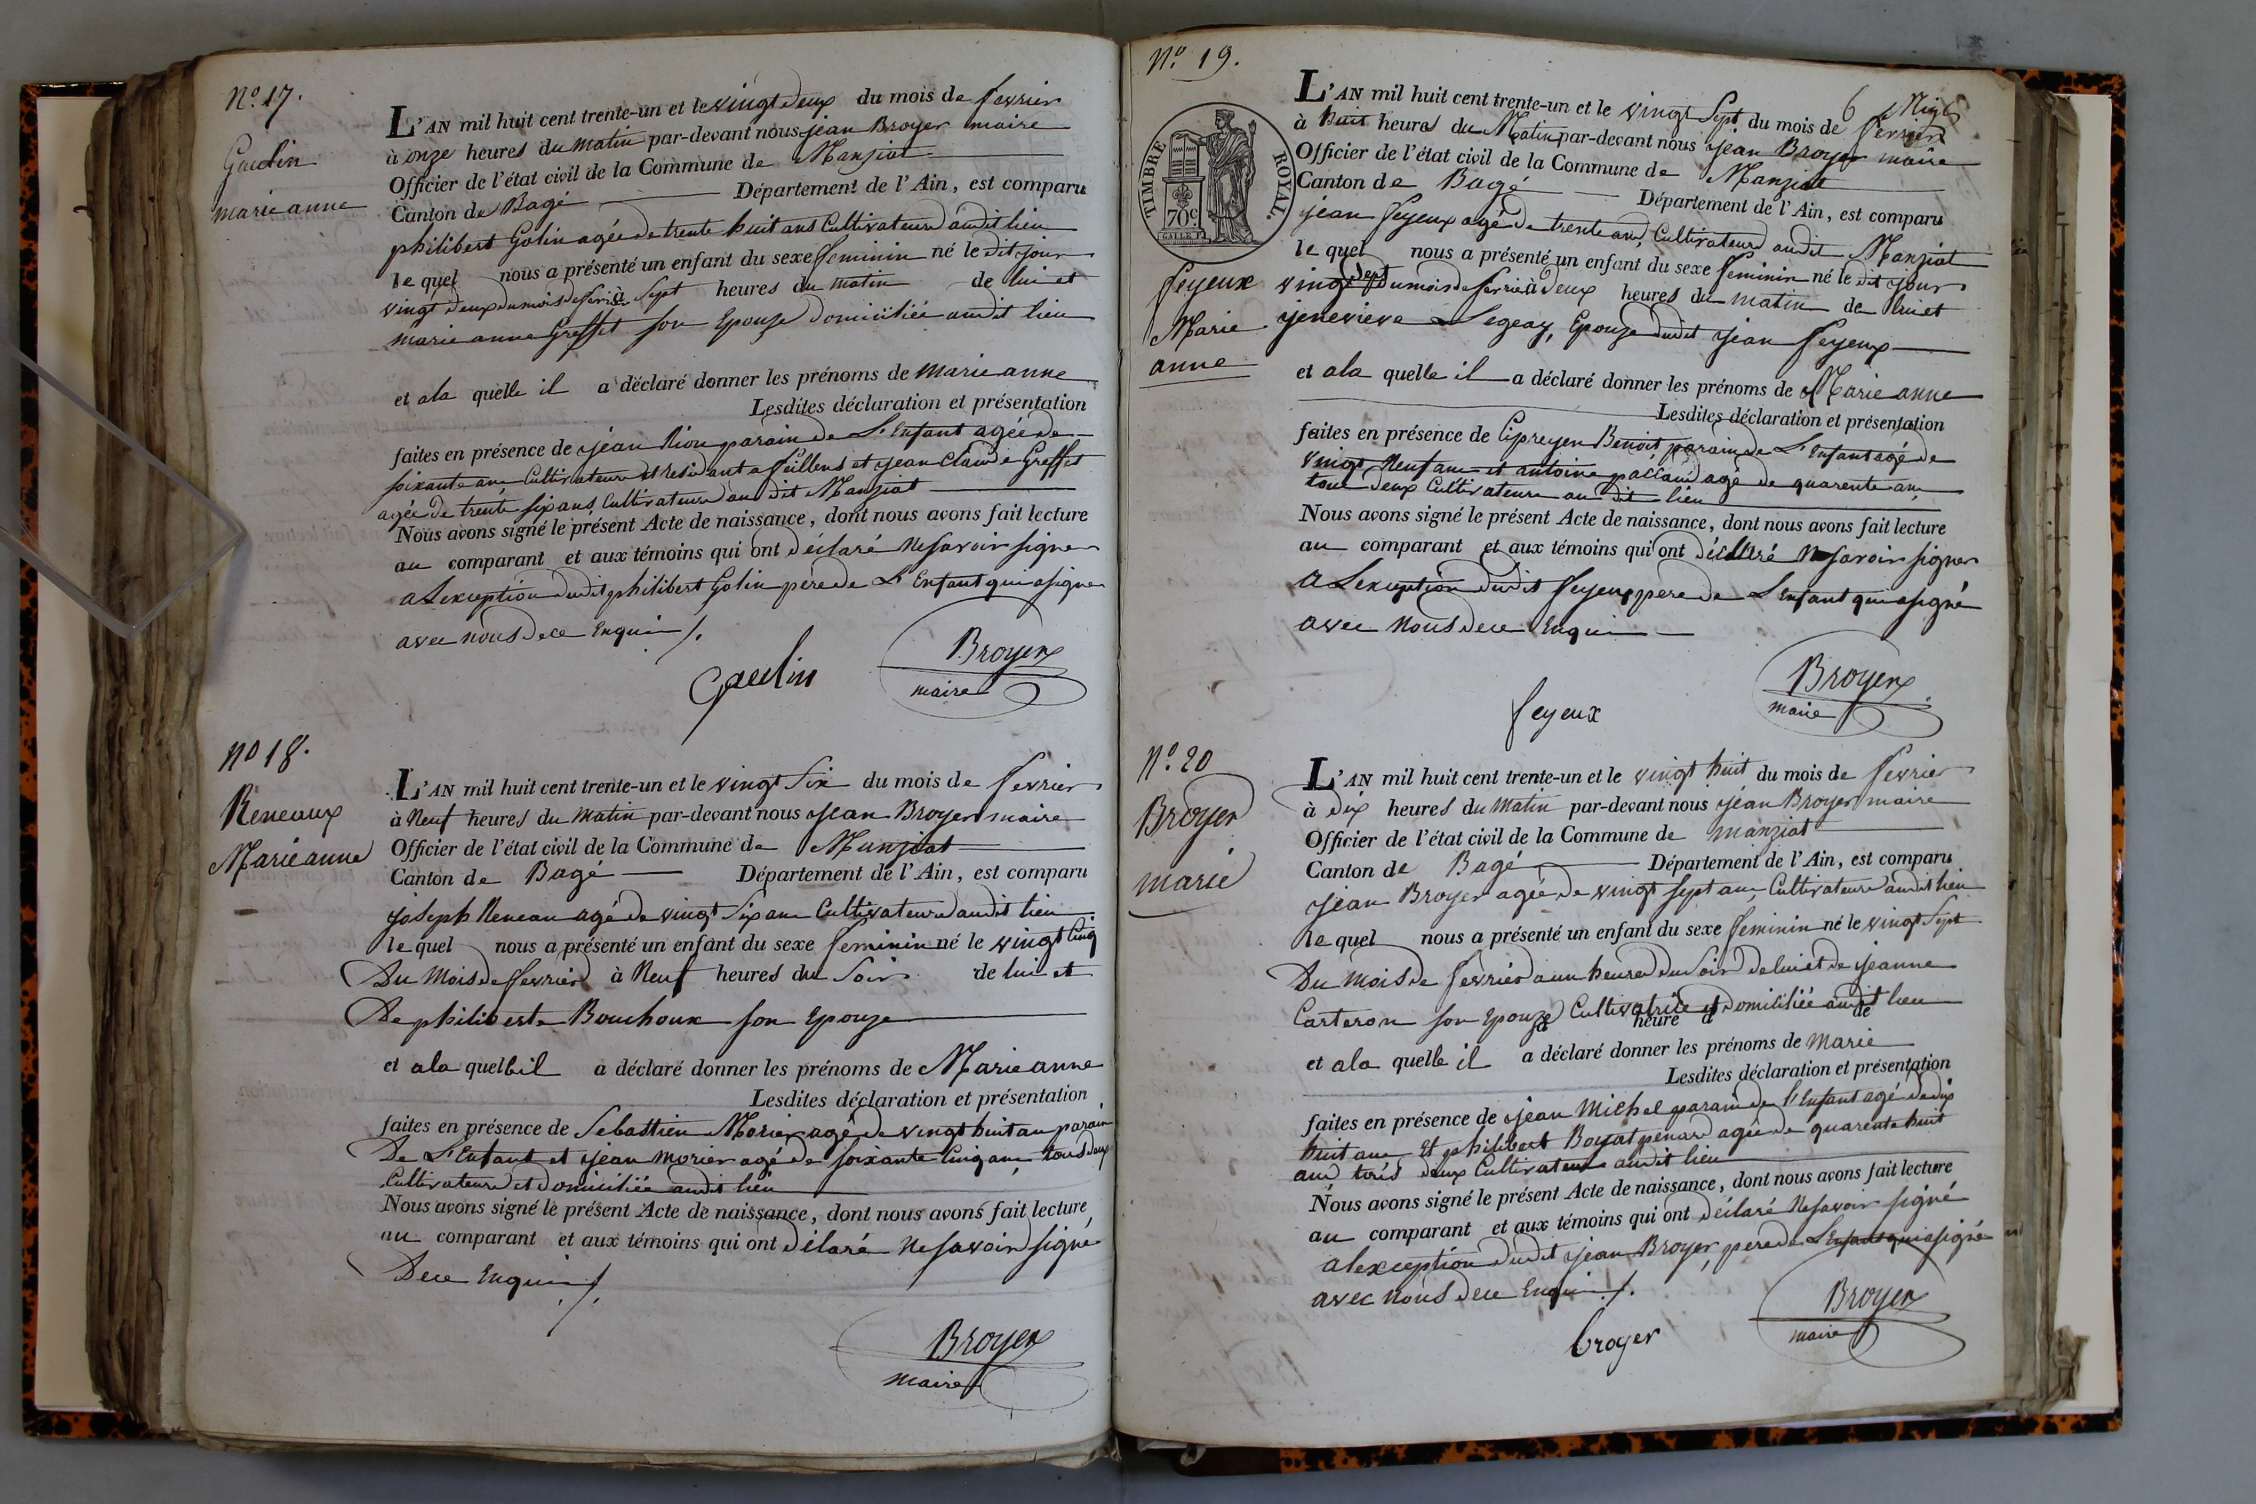 No. 17.
Gaulin
marie anne
L'AN mil huit cent trente-un et le vingt deux du mois de fevrier
à onze heures du matin par-devant nous jean Broyer maire
Officier de l'état civil de la Commune de Manziat
Canton de Bagé Département de l'Ain, est comparu
philibert Golin agée de trente huit ans Cultivateur audit lieu
le quel nous a présenté un enfant du sexe feminin né le dit jour
vingt deux du mois de fevrier à Sept heures du matin de lui et
marie anne Greffet son Epouze domiciliée audit lieu
et ala quelle il a déclaré donner les prénoms de marie anne
Lesdites déclaration et présentation
faites en présence de jean Rion parain de L'Enfant agée de
soixante ans Cultivateur et residant a feillens et jean Claude Greffet
agée de trente six ans Cultivateur au dit Manziat
Nous avons signé le présent Acte de naissance, dont nous avons fait lecture
au comparant et aux témoins qui ont déclaré Ne savoir signer
a Lexception dudit philibert Golin pere de L'Enfant qui a signer
avec nous de ce Enqui /.
Gaulin
Broyer
maire
No 18.
Reneaux
Marie anne
L'AN mil huit cent trente-un et le vingt Six du mois de fevrier
à Neuf heures du matin par-devant nous jean Broyer maire
Officier de l'état civil de la Commune de Manziat
Canton de Bagé Département de l'Ain, est comparu
joseph Reneau agé de vingt Six ans Cultivateur audit lieu
le quel nous a présenté un enfant du sexe feminin né le vingt Cinq
Du Mois de fevrier à Neuf heures du Soir de lui et
De philiberte Bouchoux son Epouze
et ala quelle il a déclaré donner les prénoms de Marie anne
Lesdites déclaration et présentation
faites en présence de Sebastien Morier agé de vingt huit ans parain
De L'Enfant et jean morier agé de soixante Cinq ans tous deux
Cultivateur et domiciliée audit lieu
Nous avons signé le présent Acte de naissance, dont nous avons fait lecture
au comparant et aux témoins qui ont déclaré Ne savoir signé
De ce Enqui /.
Broyer
maire
No. 19.
6 Ning
TIMBRE ROYAL.
70c
feyeux
Marie
anne
L'AN mil huit cent trente-un et le vingt Sept du mois de fevrier
à huit heures du Matin par-devant nous jean Broyer maire
Officier de l'état civil de la Commune de Manziat
Canton de Bagé Département de l'Ain, est comparu
jean feyeux agé de trente ans Cultivateur audit Manziat
le quel nous a présenté un enfant du sexe feminin né le dit jour
vingt Sept du mois de fevrier à deux heures du matin de lui et
jenevieve Legeay, Epouze dudit jean feyeux
et ala quelle il a déclaré donner les prénoms de Marie anne
Lesdites déclaration et présentation
faites en présence de Cipreyen Benoit, parain de L'Enfant agé de
vingt Neuf ans et antoine paccaud agé de quarente ans
tous deux Cultivateur au dit lieu
Nous avons signé le présent Acte de naissance, dont nous avons fait lecture
au comparant et aux témoins qui ont déclaré Ne savoir signer
A Lexception dudit feyeux pere de L'Enfant qui a signé
avec Nous de ce Enqui
feyeux
Broyer
maire
No. 20
Broyer
marie
L'AN mil huit cent trente-un et le vingt huit du mois de fevrier
à dix heures du Matin par-devant nous jean Broyer maire
Officier de l'état civil de la Commune de manziat
Canton de Bagé Département de l'Ain, est comparu
jean Broyer agée de vingt sept ans, Cultivateur audit lieu
le quel nous a présenté un enfant du sexe feminin né le vingt Sept
Du Mois de fevrier a un heure du Soir de lui et de jeanne
Carteron son Epouze Cultivatrice et domiciliée audit lieu
à heure d de
et ala quelle il a déclaré donner les prénoms de marie
Lesdites déclaration et présentation
faites en présence de jean Michel parain de l'Enfant agé de dix
huit ans et philibert Boyat penard agée de quarente huit
ans tous deux Cultivateur audit lieu
Nous avons signé le présent Acte de naissance, dont nous avons fait lecture
au comparant et aux témoins qui ont déclaré Ne savoir signé
alexception dudit jean Broyer, pere de L'Enfant qui a signé
avec nous de ce Enqui /.
broyer
Broyer
maire